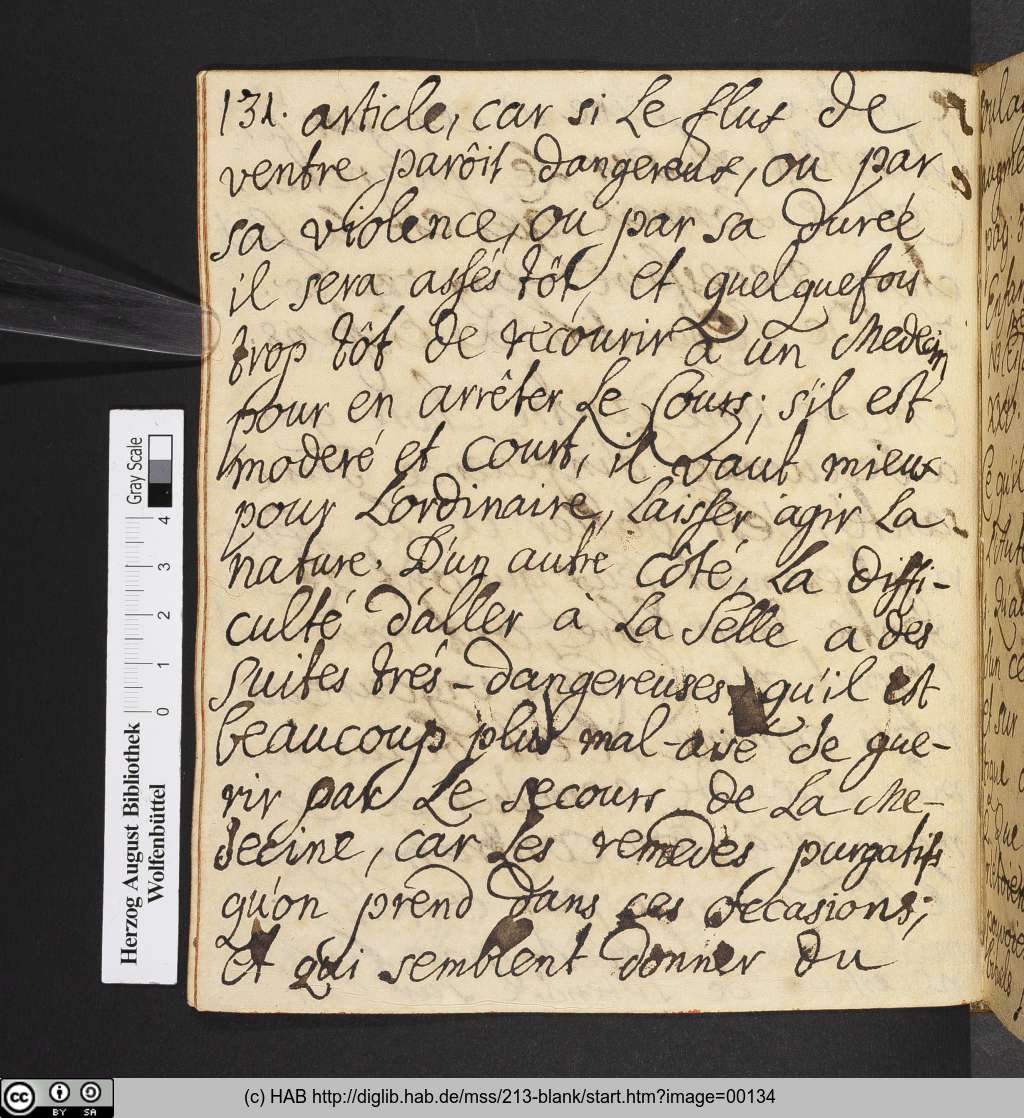 131. article, car si Le flux de
ventre parôit dangereux, ou par
sa violence, ou par sa dureé
il sera assés tôt, et quelquefois
trop tôt de recourir à un Medecin
pour en arrêter Le Cours; s'il est
moderé et court, il vaut mieux
pour L'ordinaire, Laisser agir La
nature. D'un autre côté, La diffi-
culté d'aller à La Selle a des
suites três-dangereuses qu'il est
beaucoup plus mal-aisé de gue-
rir par Le secours de La Me-
decine, car Les remedes purgatifs
qu'on prend dans ces occasions;
et qui semblent donner du
Gray Scale
4
3
2
1
0
Herzog August Bibliothek
Wolfenbüttel
cc BY SA
(c) HAB http://diglib.hab.de/mss/213-blank/start.htm?image=00134